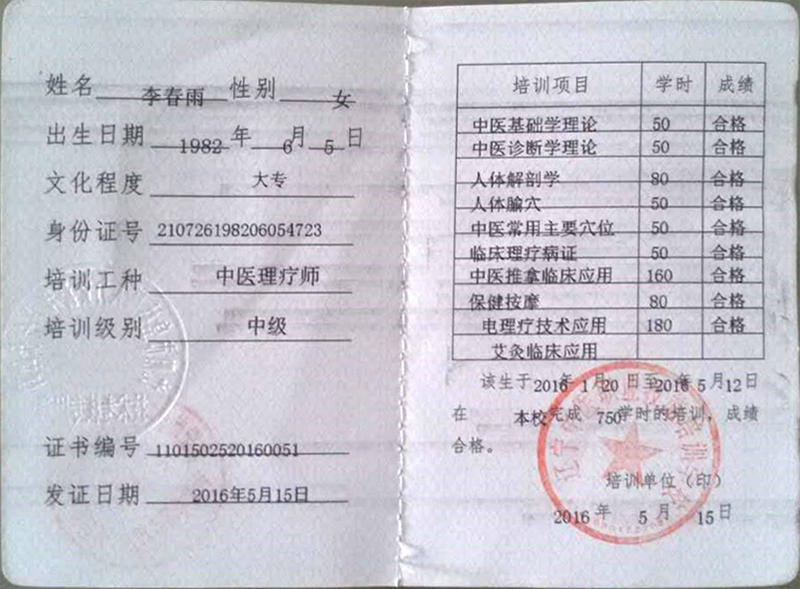 姓名 李春雨 性别 女
出生日期 1982 年 6 月 5 日
文化程度 大专
身份证号 210726198206054723
培训工种 中医理疗师
培训级别 中级
证书编号 1101502520160051
发证日期 2016年5月15日
培训项目 学时 成绩
中医基础学理论 50 合格
中医诊断学理论 50 合格
人体解剖学 80 合格
人体腧穴 50 合格
中医常用主要穴位 50 合格
临床理疗病证 50 合格
中医推拿临床应用 160 合格
保健按摩 80 合格
电理疗技术应用 180 合格
艾灸临床应用
该生于2016年1月20日至2016年5月12日
在 本校完成 750学时的培训，成绩
合格。
培训单位（印）
2016 年 5 月 15日